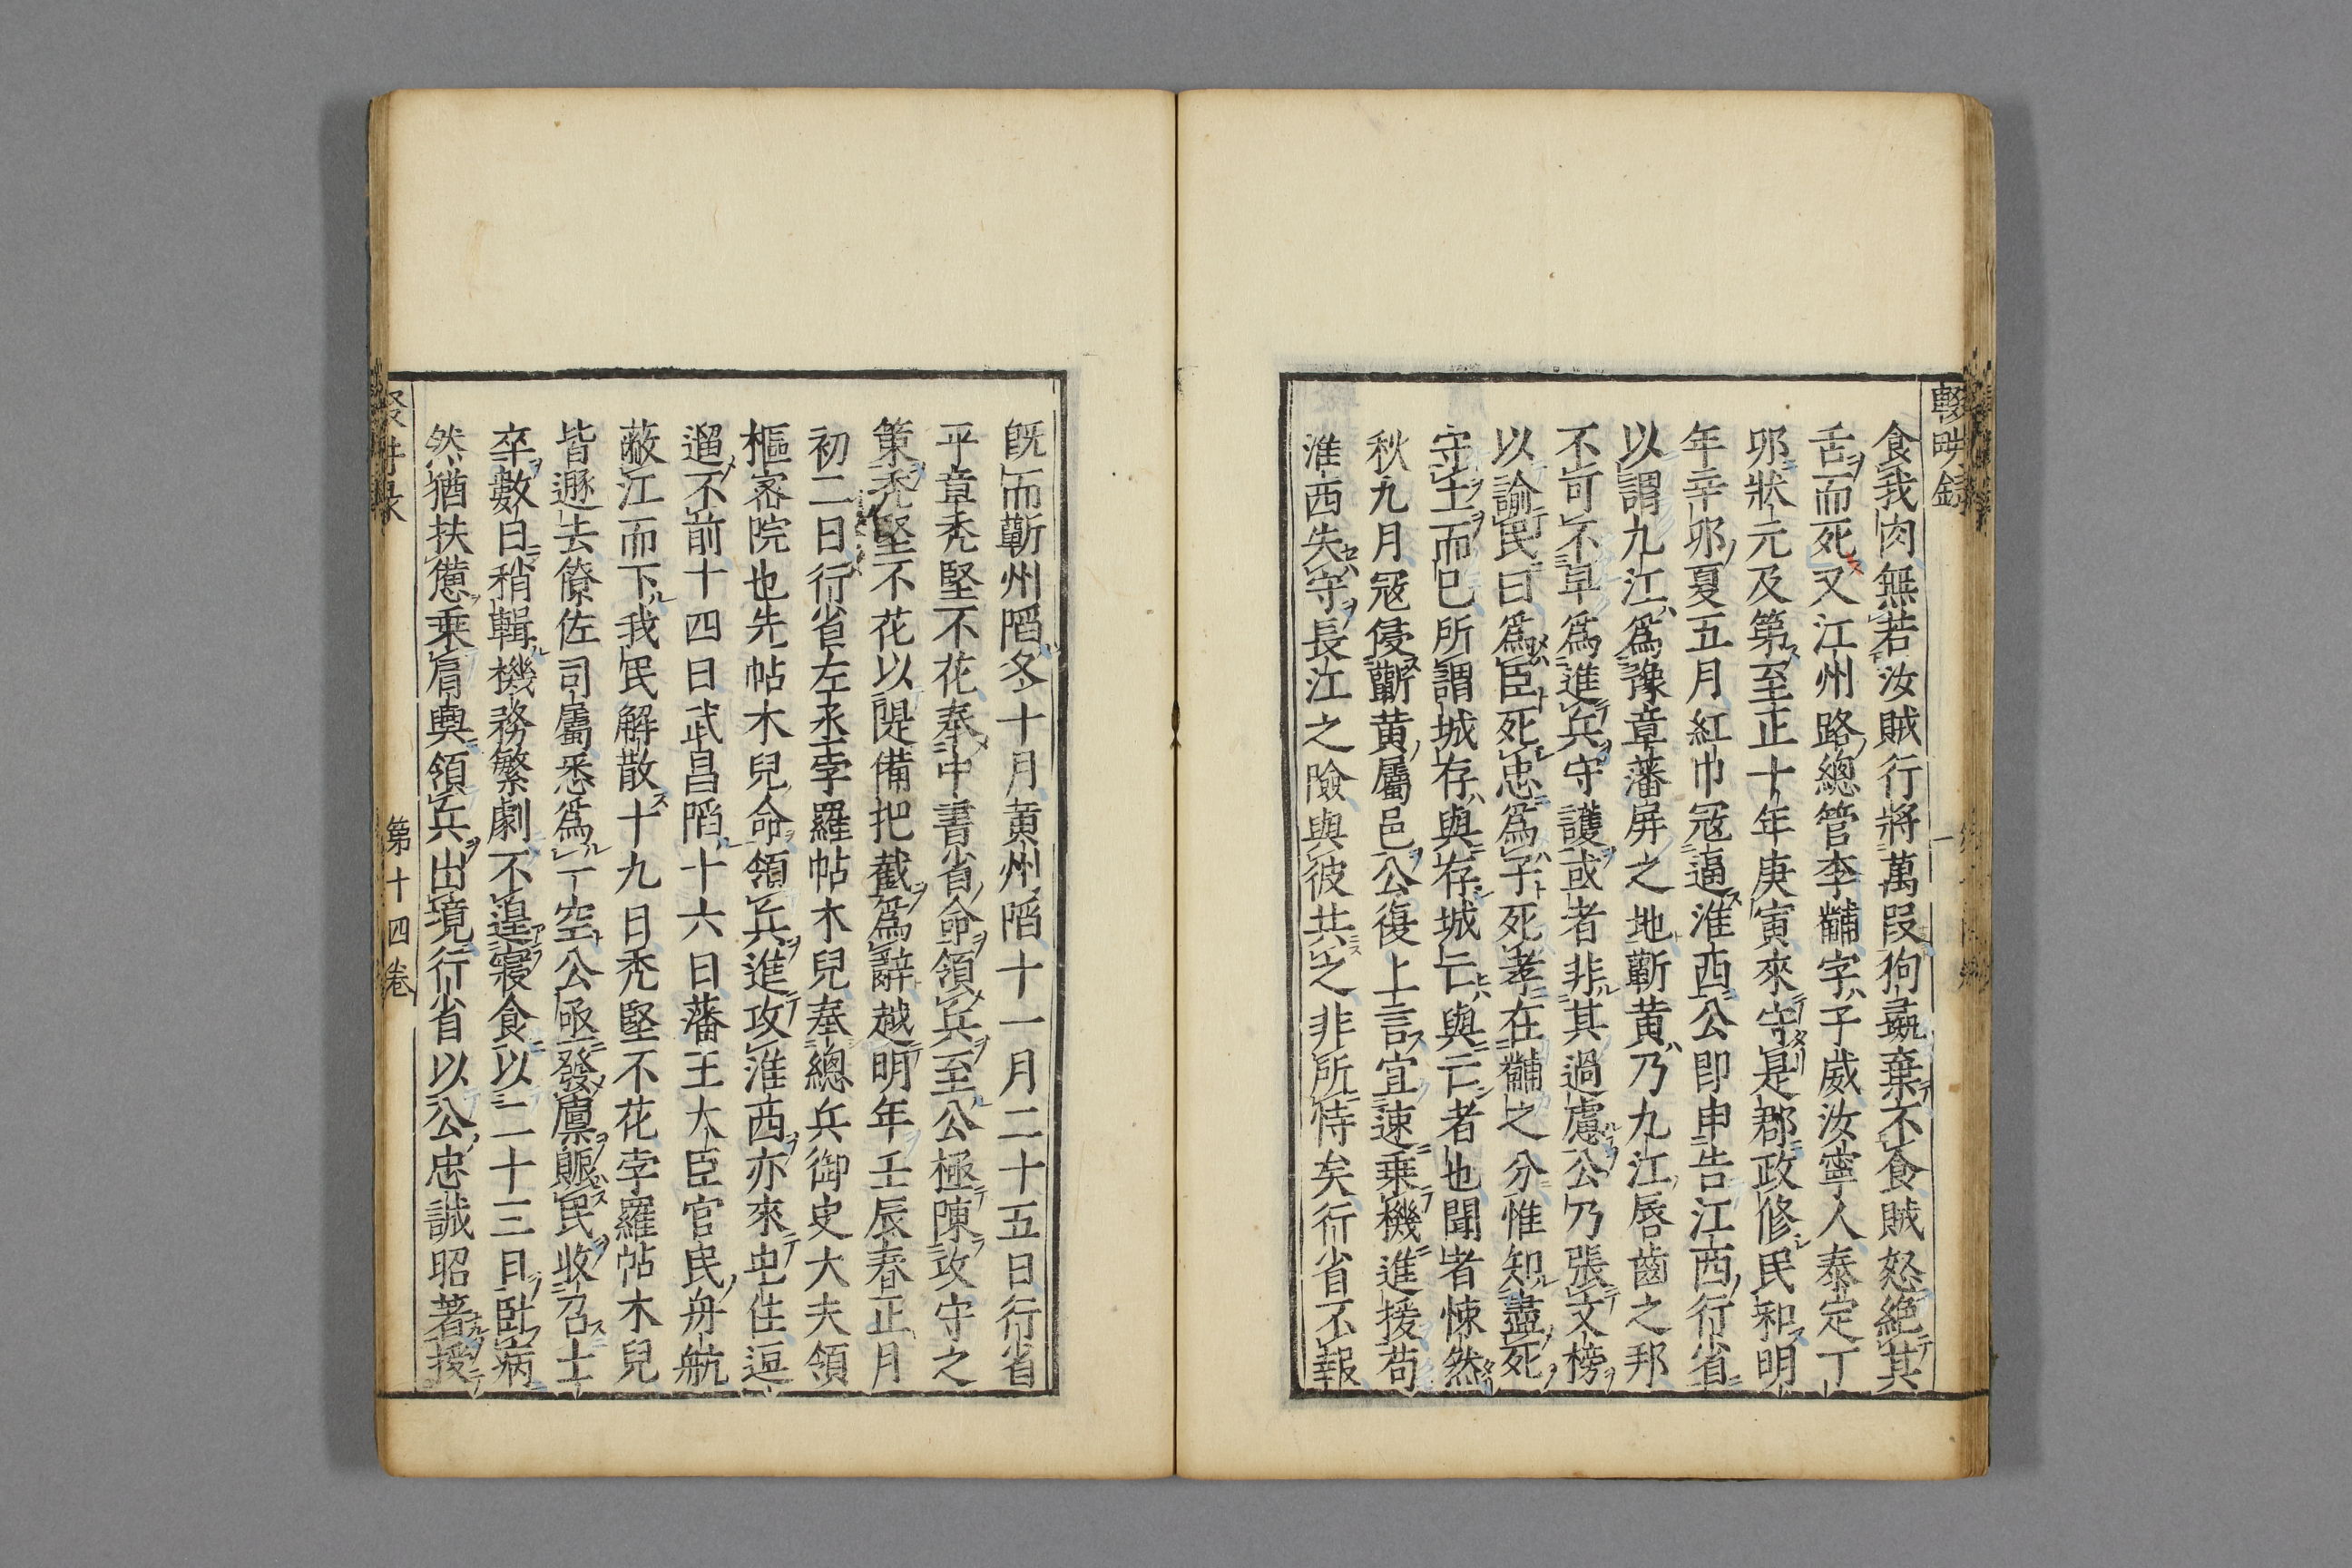 輟畊録
一
食我肉無若汝賊行將萬段狗彘棄不食賊怒絶其
舌而死又江州路總管李黼字子威汝寧人泰定丁
卯狀元及第至正十年庚寅來守是郡政修民和明
年辛卯夏五月紅巾寇逼淮西公即申告江西行省
以謂九江爲豫章藩屏之地蘄黄乃九江唇齒之邦
不可不早爲進兵守護或者非其過慮公乃張文榜
以諭民曰爲臣死忠爲子死孝在黼之分惟知盡死
守土而已所謂城存與存城亡與亡者也聞者悚然
秋九月寇侵蘄黄屬邑公復上言宜速乗機進援苟
淮西失守長江之險與彼共之非所恃矣行省不報
既而蘄州陷冬十月黄州陷十一月二十五日行省
平章禿堅不花奉中書省命領兵至公極陳攻守之
策禿堅不花以隄備把截爲辭越明年壬辰春正月
初二日行省左丞孛羅帖木兒奉總兵御史大夫領
樞密院也先帖木兒命領兵進攻淮西亦來屯住逗
遛不前十四日武昌陷十六日藩王大臣官民舟航
蔽江而下我民解散十九日禿堅不花孛羅帖木兒
皆遯去僚佐司屬悉爲一空公亟發廪賑民收召士
卒數日稍輯機務繁劇不遑寢食以二十三日臥病
然猶扶憊乗肩輿領兵出境行省以公忠誠昭著援
第十四卷